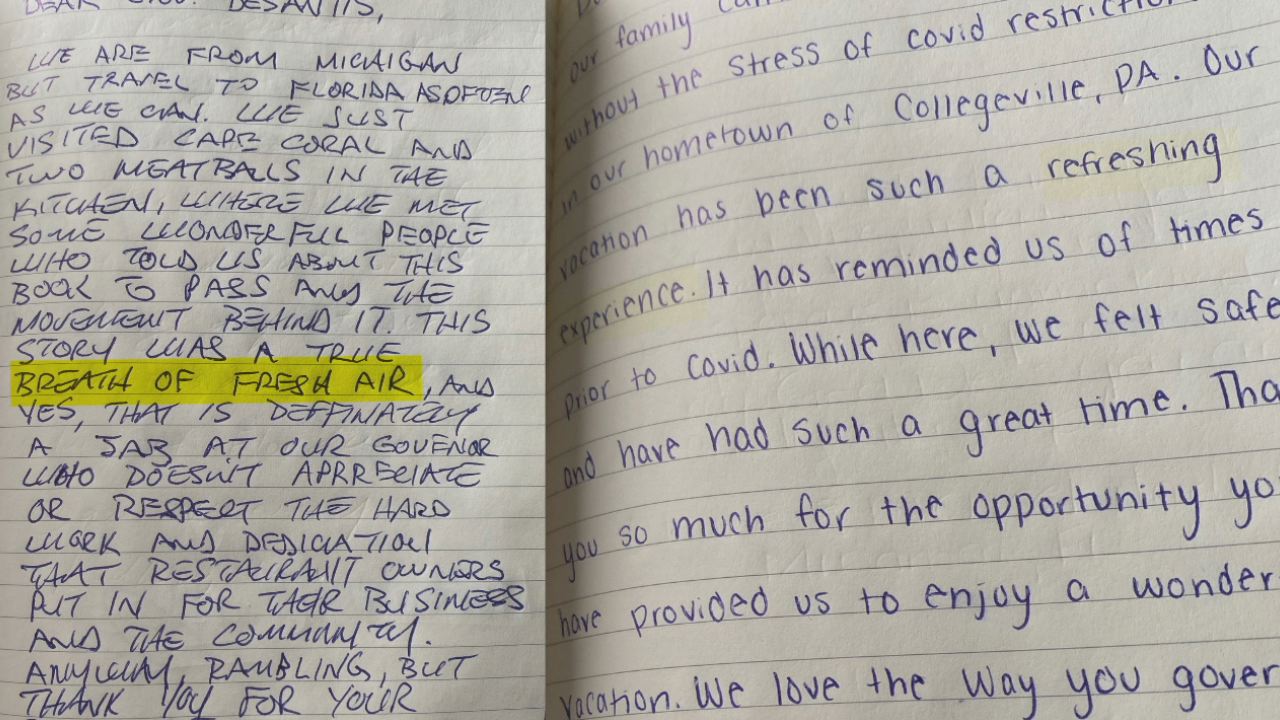 DEAR GOV. DESANTIS,
WE ARE FROM MICHIGAN
BUT TRAVEL TO FLORIDA AS OFTEN
AS WE CAN. WE JUST
VISITED CAPE CORAL AND
TWO MEATBALLS IN THE
KITCHEN, WHERE WE MET
SOME WONDERFUL PEOPLE
WHO TOLD US ABOUT THIS
BOOK TO PASS AND THE
MOVEMENT BEHIND IT. THIS
STORY WAS A TRUE
BREATH OF FRESH AIR, AND
YES, THAT IS DEFFINATELY
A JAB AT OUR GOVENOR
WHO DOESN'T APRRECIATE
OR RESPECT THE HARD
WORK AND DEDICATION
THAT RESTAURANT OWNERS
PUT IN FOR THEIR BUSINESS
AND THE COMMUNITY.
ANYWAY, RAMBLING, BUT
THANK YOU FOR YOUR
our family
without the stress of covid restriction
in our hometown of Collegeville, PA. Our
vacation has been such a refreshing
experience. It has reminded us of times
prior to Covid. While here, we felt safe
and have had such a great time. Tha
you so much for the opportunity yo
have provided us to enjoy a wonder
vacation. We love the way you gover